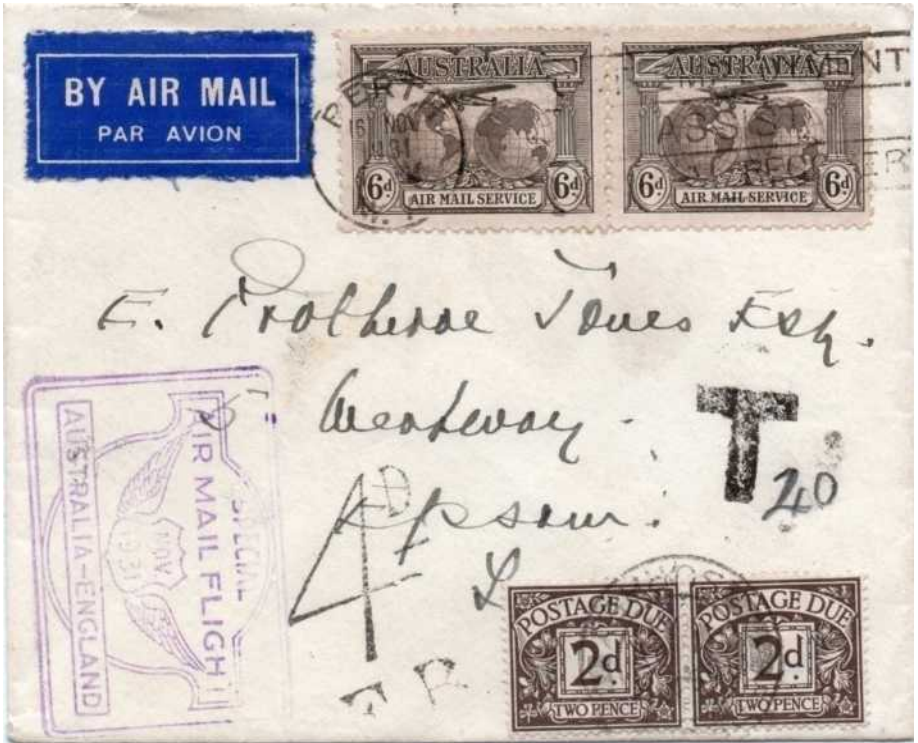 BY AIR MAIL
PAR AVION
AUSTRALIA
6d 6d
AIR MAIL SERVICE
AUSTRALIA
6d 6d
AIR MAIL SERVICE
PERTH
16 NOV
31
W.A.
ASSIST
E. Protheroe Jones Esq.
Epsom.
T
40
4D
SPECIAL
AIR MAIL FLIGHT
NOV
1931
AUSTRALIA-ENGLAND
POSTAGE DUE
2d
TWO PENCE
POSTAGE DUE
2d
TWO PENCE